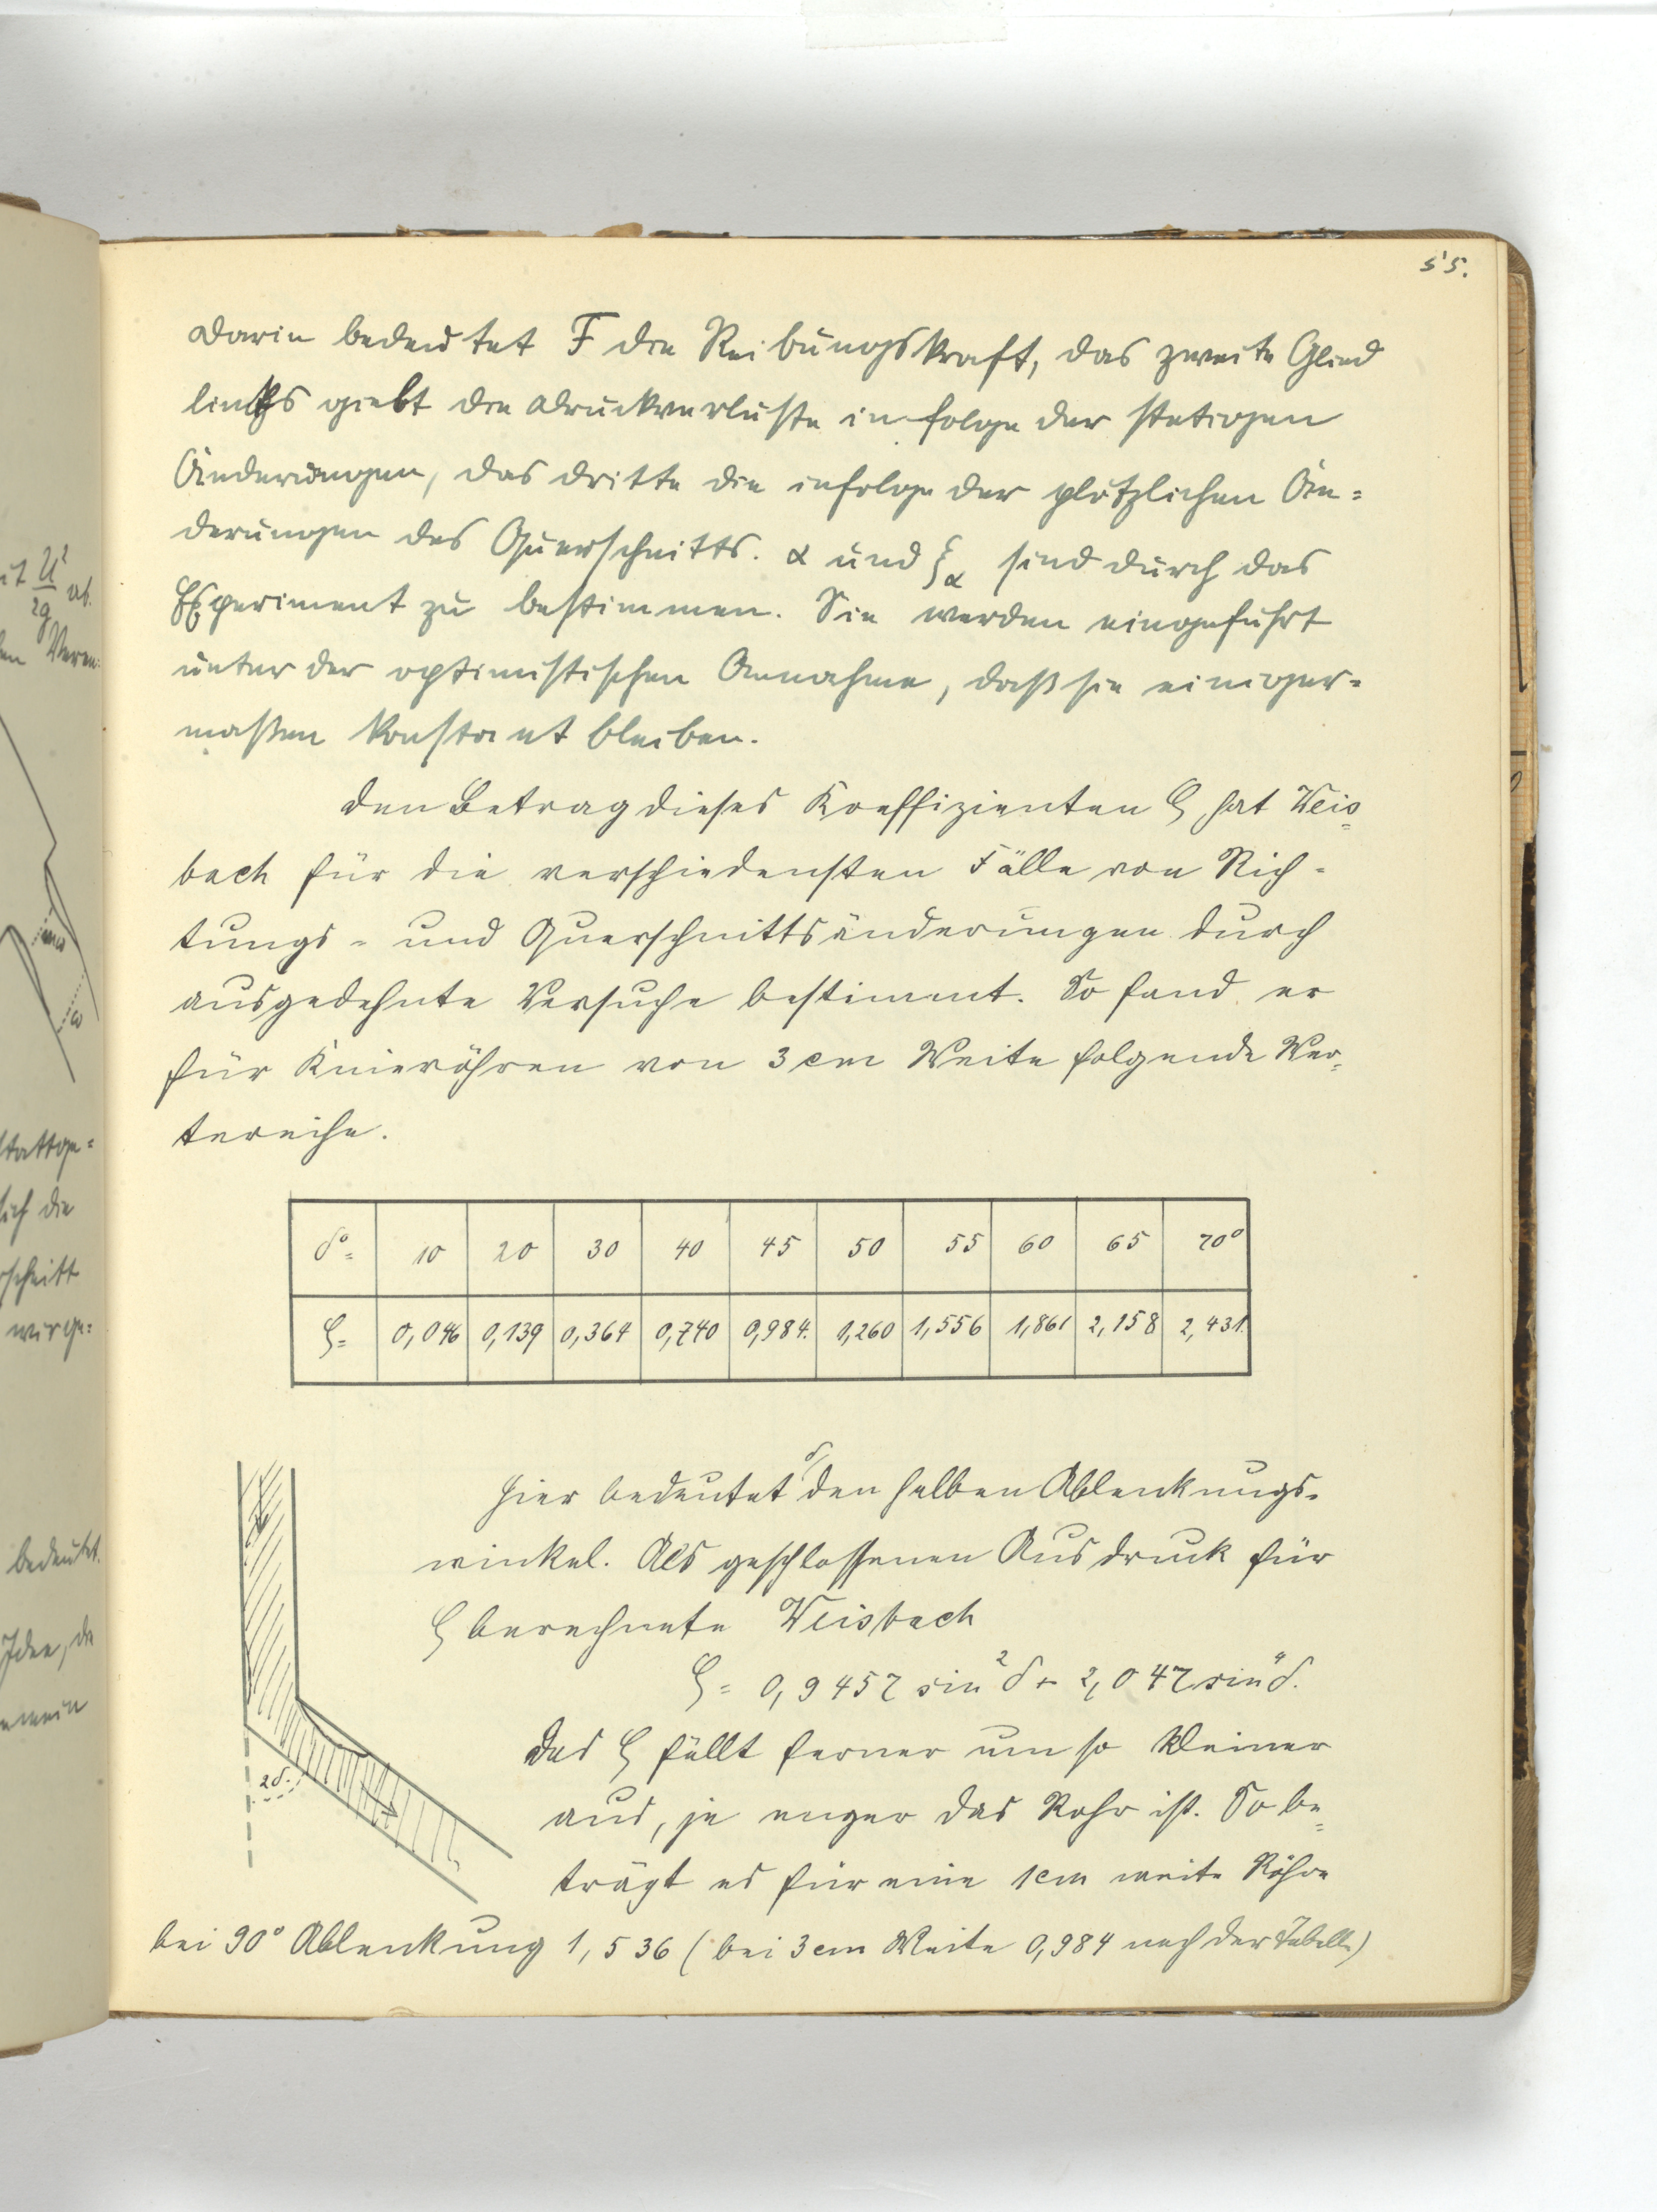 55.
Darin bedeutet F die Reibungskraft, das zweite Glied
links giebt die Druckverluste in folge der stetigen
Änderungen, das dritte die infolge der plötzlichen Än=
derungen des Querschnitts. α und ξα sind durch das
Experiment zu bestimmen. Sie werden eingeführt
unter der optimistischen Annahme, daß sie einiger=
maßen konstant bleiben.
Den Betrag dieses Koeffizienten ζ hat Weis=
bach für die verschiedensten Fälle von Rich-
tungs- und Querschnittsänderungen durch
ausgedehnte Versuche bestimmt. So fand er
für Knieröhren von 3 cm Weite folgende Wer=
tereihe.
δ°= 10 20 30 40 45 50 55 60 65 70°
ζ= 0,046 0,139 0,364 0,740 0,984. 1,260 1,556 1,861 2,158 2,431.
Hier bedeutet δ den halben Ablenkungs-
winkel. Als geschlossenen Ausdruck für
ζ berechnete Weisbach
ζ = 0,9457 sin²δ + 2,047 sin⁴δ.
Das ζ fällt ferner um so kleiner
aus, je enger das Rohr ist. So be=
trägt es für eine 1cm weite Röhre
bei 90° Ablenkung 1,536 (bei 3 cm Weite 0,984 nach der Tabelle)
2δ.
it U²/2g ab.
Veren=
stattge=
sich die
wir ge=
bedeutet.
Idee, die